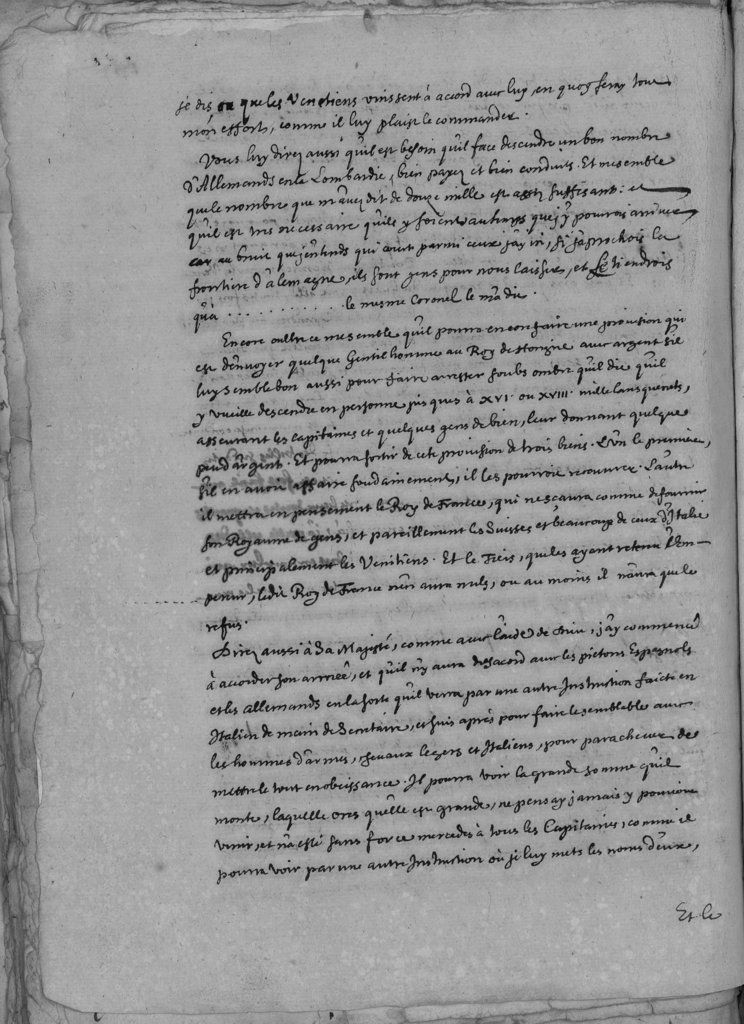 je dis que les Venetiens vinssent à accord avec luy, en quoy feray tout
mon effort, comme il luy plaist le commander.
Vous luy direz aussi qu'il est besoin qu'il face descendre un bon nombre
d'Allemands en la Lombardie, bien payez et bien conduits. Et me semble
que le nombre que m'avez dit de douze mille est assez suffisant: et
qu'il est tres necessaire qu'ils y soient au temps que j'y pourois arriver
car, au bruit que j'entends qui court parmi ceux j'ay ici, si j'aprochois la
frontiere d'alemagne, ils sont gens pour nous laisser, et le tiendrois
qu'à . . . . . . . . . . . . le mesme Coronel le m'a dit.
Encore oultre ce me semble qu'il pourra encore faire une provision qui
est d'envoyer quelque Gentilhomme au Roy de Hongrie avec argent s'il
luy semble bon aussi pour faire arrester soubs ombre qu'il die qu'il
y vueille descendre en personne jusques à XVI. ou XVIII. mille lansquenets,
asseurant les capitaines et quelques gens de bien, leur donnant quelque
peu d'argent. Et pourra sortir de cete provision de trois biens. L'un le premier,
s'il en avoit affaire soudainement, il les pourroit recouvrer. L'autre
il mettra en pensement le Roy de France, qui ne scaura comme de fournir
son Royaume de gens, et pareillement les Suisses et beaucoup de ceux d'Italie
et principalement les Venitiens. Et le Tiers, que les ayant retenu l'Em-
pereur, ledit Roy de France n'en aura nuls, ou au moins il n'aura que le
refus.
Direz aussi à Sa Majesté, comme avec l'aide de Dieu, j'ay commencé
à accorder son armée, et qu'il n'y aura desacord avec les pietons Espagnols
et les allemands en la sorte qu'il verra par une autre Instruction faicte en
Italien de main de Secretaire, et suis après pour faire le semblable avec
les hommes d'armes, chevaux legers et Italiens, pour parachever de
mettre le tout en obeissance. Il pourra voir la grande somme qu'il
monte, laquelle ores qu'elle est grande, ne pensay jamais y pouvoir
venir, et n'a esté sans force mercedes à tous les Capitaines, comme il
pourra voir par une autre Instruction où je luy mets les noms d'eux,
Et le